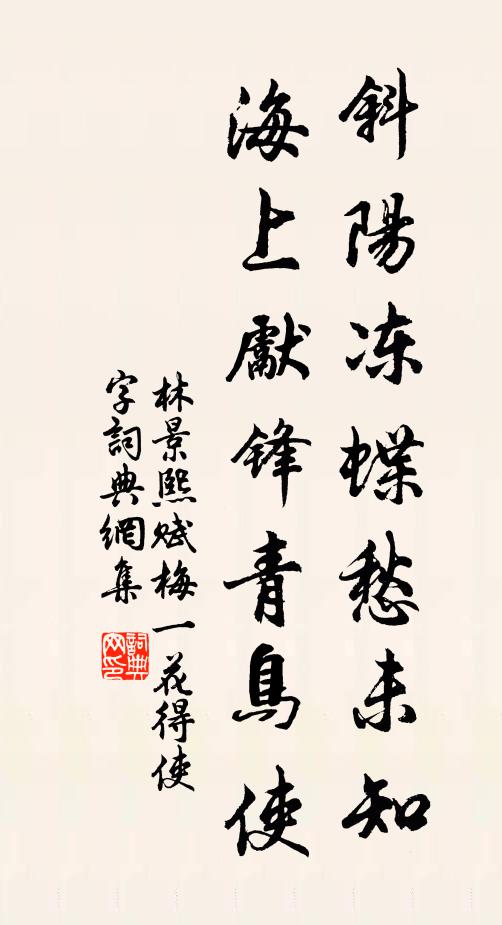 斜陽冻蝶愁未知
海上獻锋青鳥使
林景熙赋梅一花得使
字詞典網集
詞典
网印